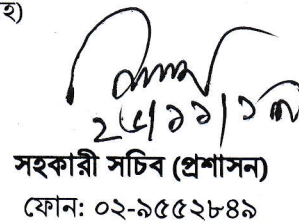 ২)
২৫/১১/১৩
সহকারী সচিব (প্রশাসন)
ফোন: ০২-৯৫৫২৮৪৯